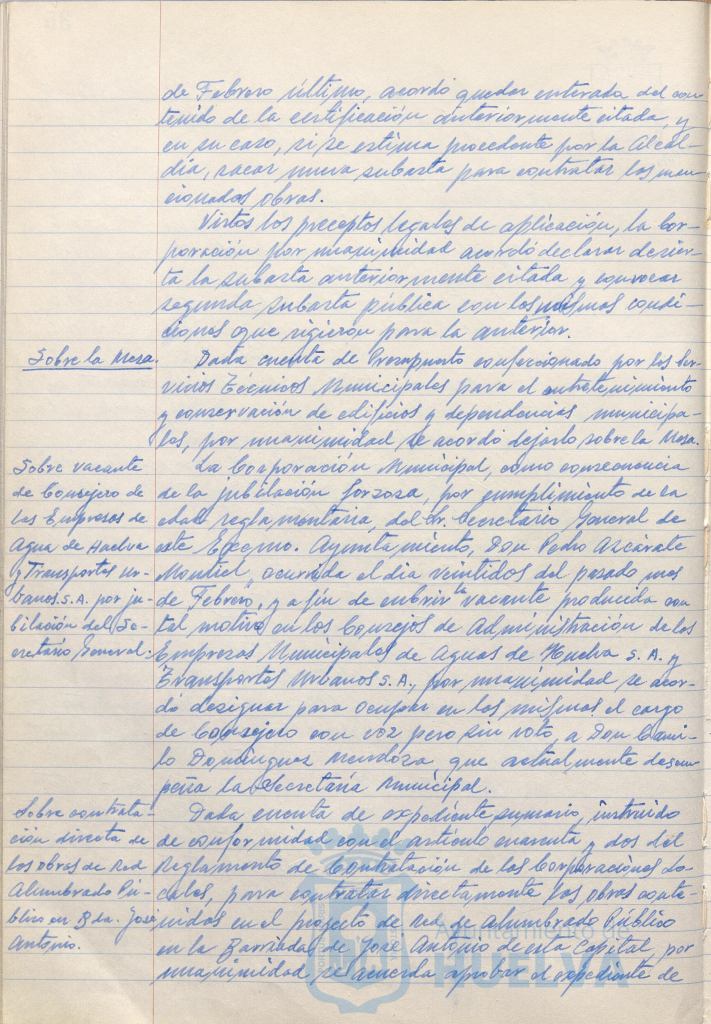 de Febrero último, acordó quedar enterada del con-
tenido de la certificación anteriormente citada, y
en su caso, si se estima procedente por la Alcal-
día, sacar nueva subasta para contratar las men-
cionadas obras.
Vistos los preceptos legales de aplicación, la Cor-
poración por unanimidad acordó declarar desier-
ta la subasta anteriormente citada y convocar
segunda subasta pública con las mismas condi-
ciones que rigieron para la anterior.
Sobre la Mesa.
Dada cuenta de Presupuesto confeccionado por los Ser-
vicios Técnicos Municipales para el entretenimiento
y conservación de edificios y dependencias municipa-
les, por unanimidad se acordó dejarlo sobre la Mesa.
Sobre vacante
de Consejero de
las Empresas de
Agua de Huelva
y Transportes Ur-
banos S.A. por ju-
bilación del Se-
cretario General.
La Corporación Municipal, como consecuencia
de la jubilación forzosa, por cumplimiento de la
edad reglamentaria, del Sr. Secretario General de
este Excmo. Ayuntamiento, Don Pedro Azcárate
Montiel, ocurrida el día veintidos del pasado mes
de Febrero, y a fín de cubrir la vacante producida con
tal motivo en los Consejos de Administración de las
Empresas Municipales de Aguas de Huelva S.A. y
Transportes Urbanos S.A., por unanimidad se acor-
dó designar para ocupar en los mismos el cargo
de Consejero con voz pero sin voto, a Don Cami-
lo Domínguez Mendoza, que actualmente desem-
peña la Secretaría Municipal.
Sobre contrata-
ción directa de
las obras de Red
Alumbrado Pú-
blico en Bda. José
Antonio.
Dada cuenta de expediente sumario, instruido
de conformidad con el artículo cuarenta y dos del
Reglamento de Contratación de las Corporaciones Lo-
cales, para contratar directamente las obras conte-
nidas en el proyecto de red de Alumbrado Público
en la Barriada de José Antonio de esta Capital, por
unanimidad se acuerda aprobar el expediente de
HUELVA